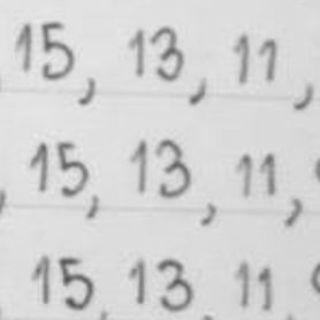 15, 13, 11,
, 15, 13, 11,
15, 13, 11